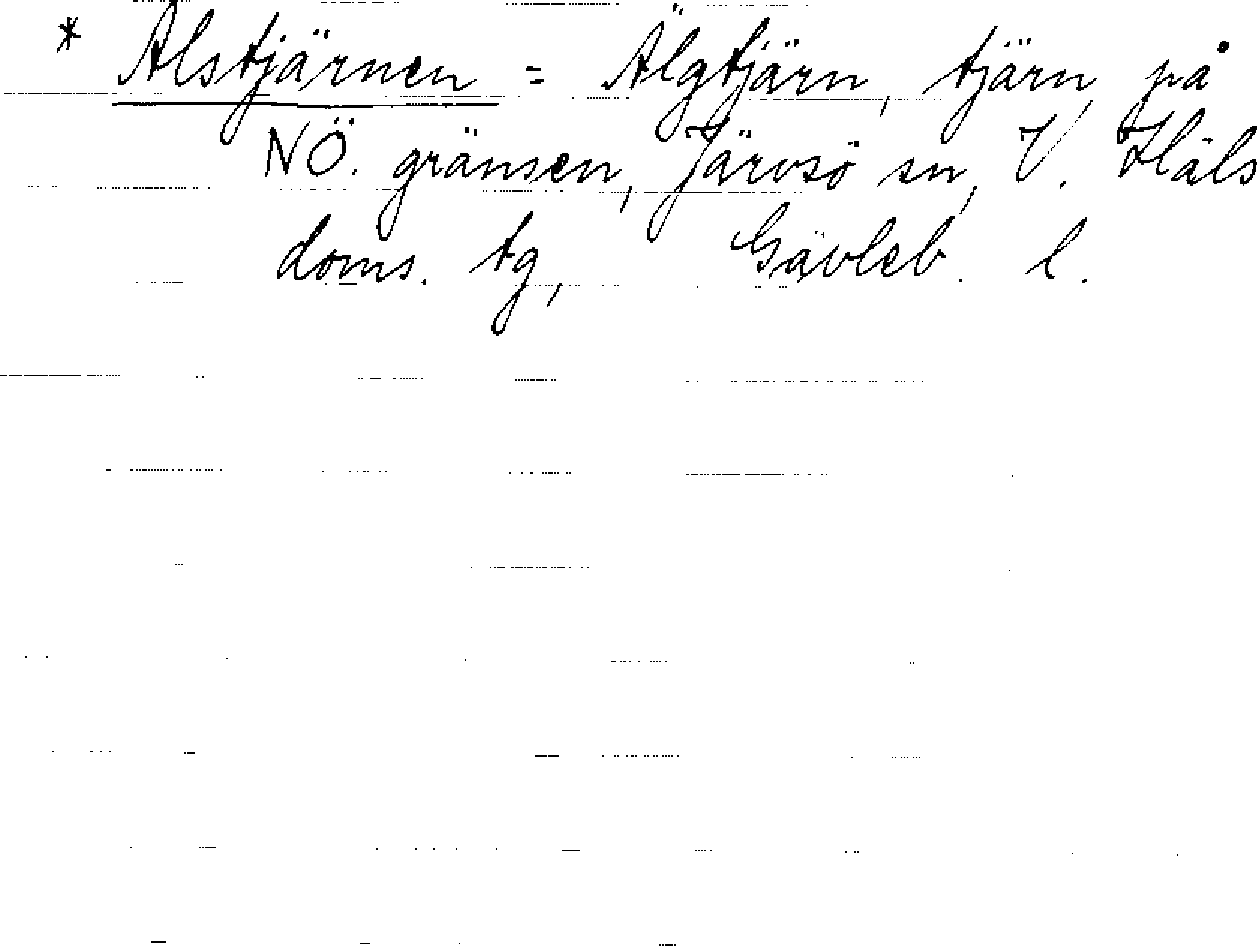 * Alstjärnen = Älgtjärn, tjärn på
NÖ. gränsen, Järvsö sn, V. Häls
doms. tg, Gävleb. l.